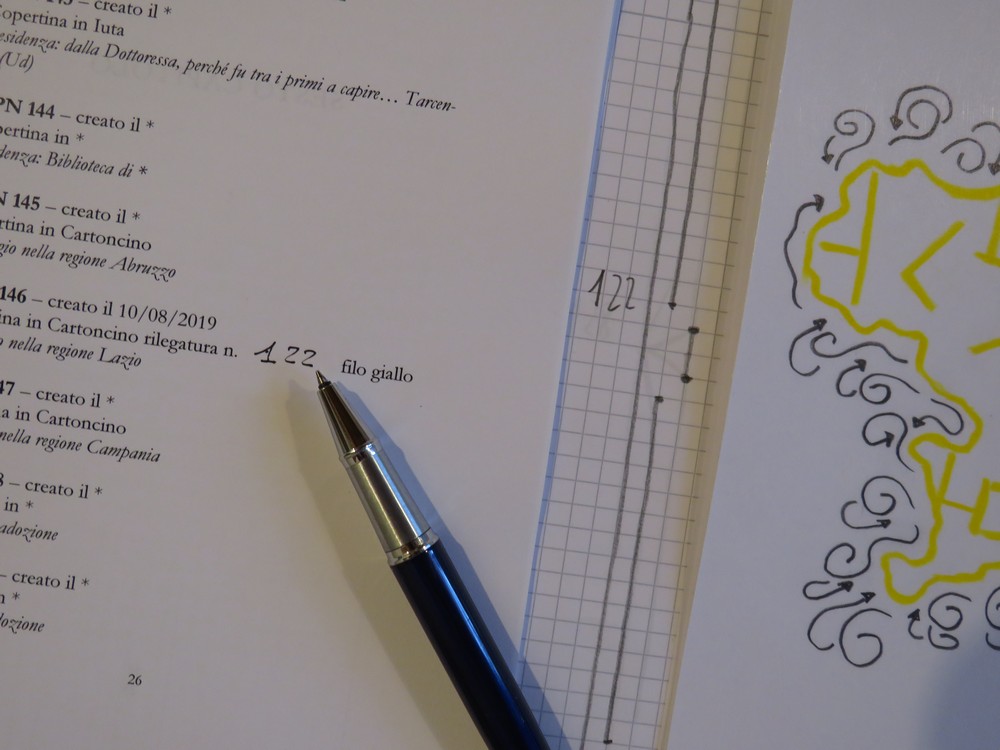 – creato il *
opertina in Iuta
esidenza: dalla Dottoressa, perché fu tra i primi a capire… Tarcen-
(Ud)
PN 144 – creato il *
pertina in *
denza: Biblioteca di *
N 145 – creato il *
rtina in Cartoncino
gio nella regione Abruzzo
146 – creato il 10/08/2019
ina in Cartoncino rilegatura n. 122 filo giallo
o nella regione Lazio
47 – creato il *
a in Cartoncino
nella regione Campania
8 – creato il *
in *
adozione
– creato il *
n *
dozione
26
122